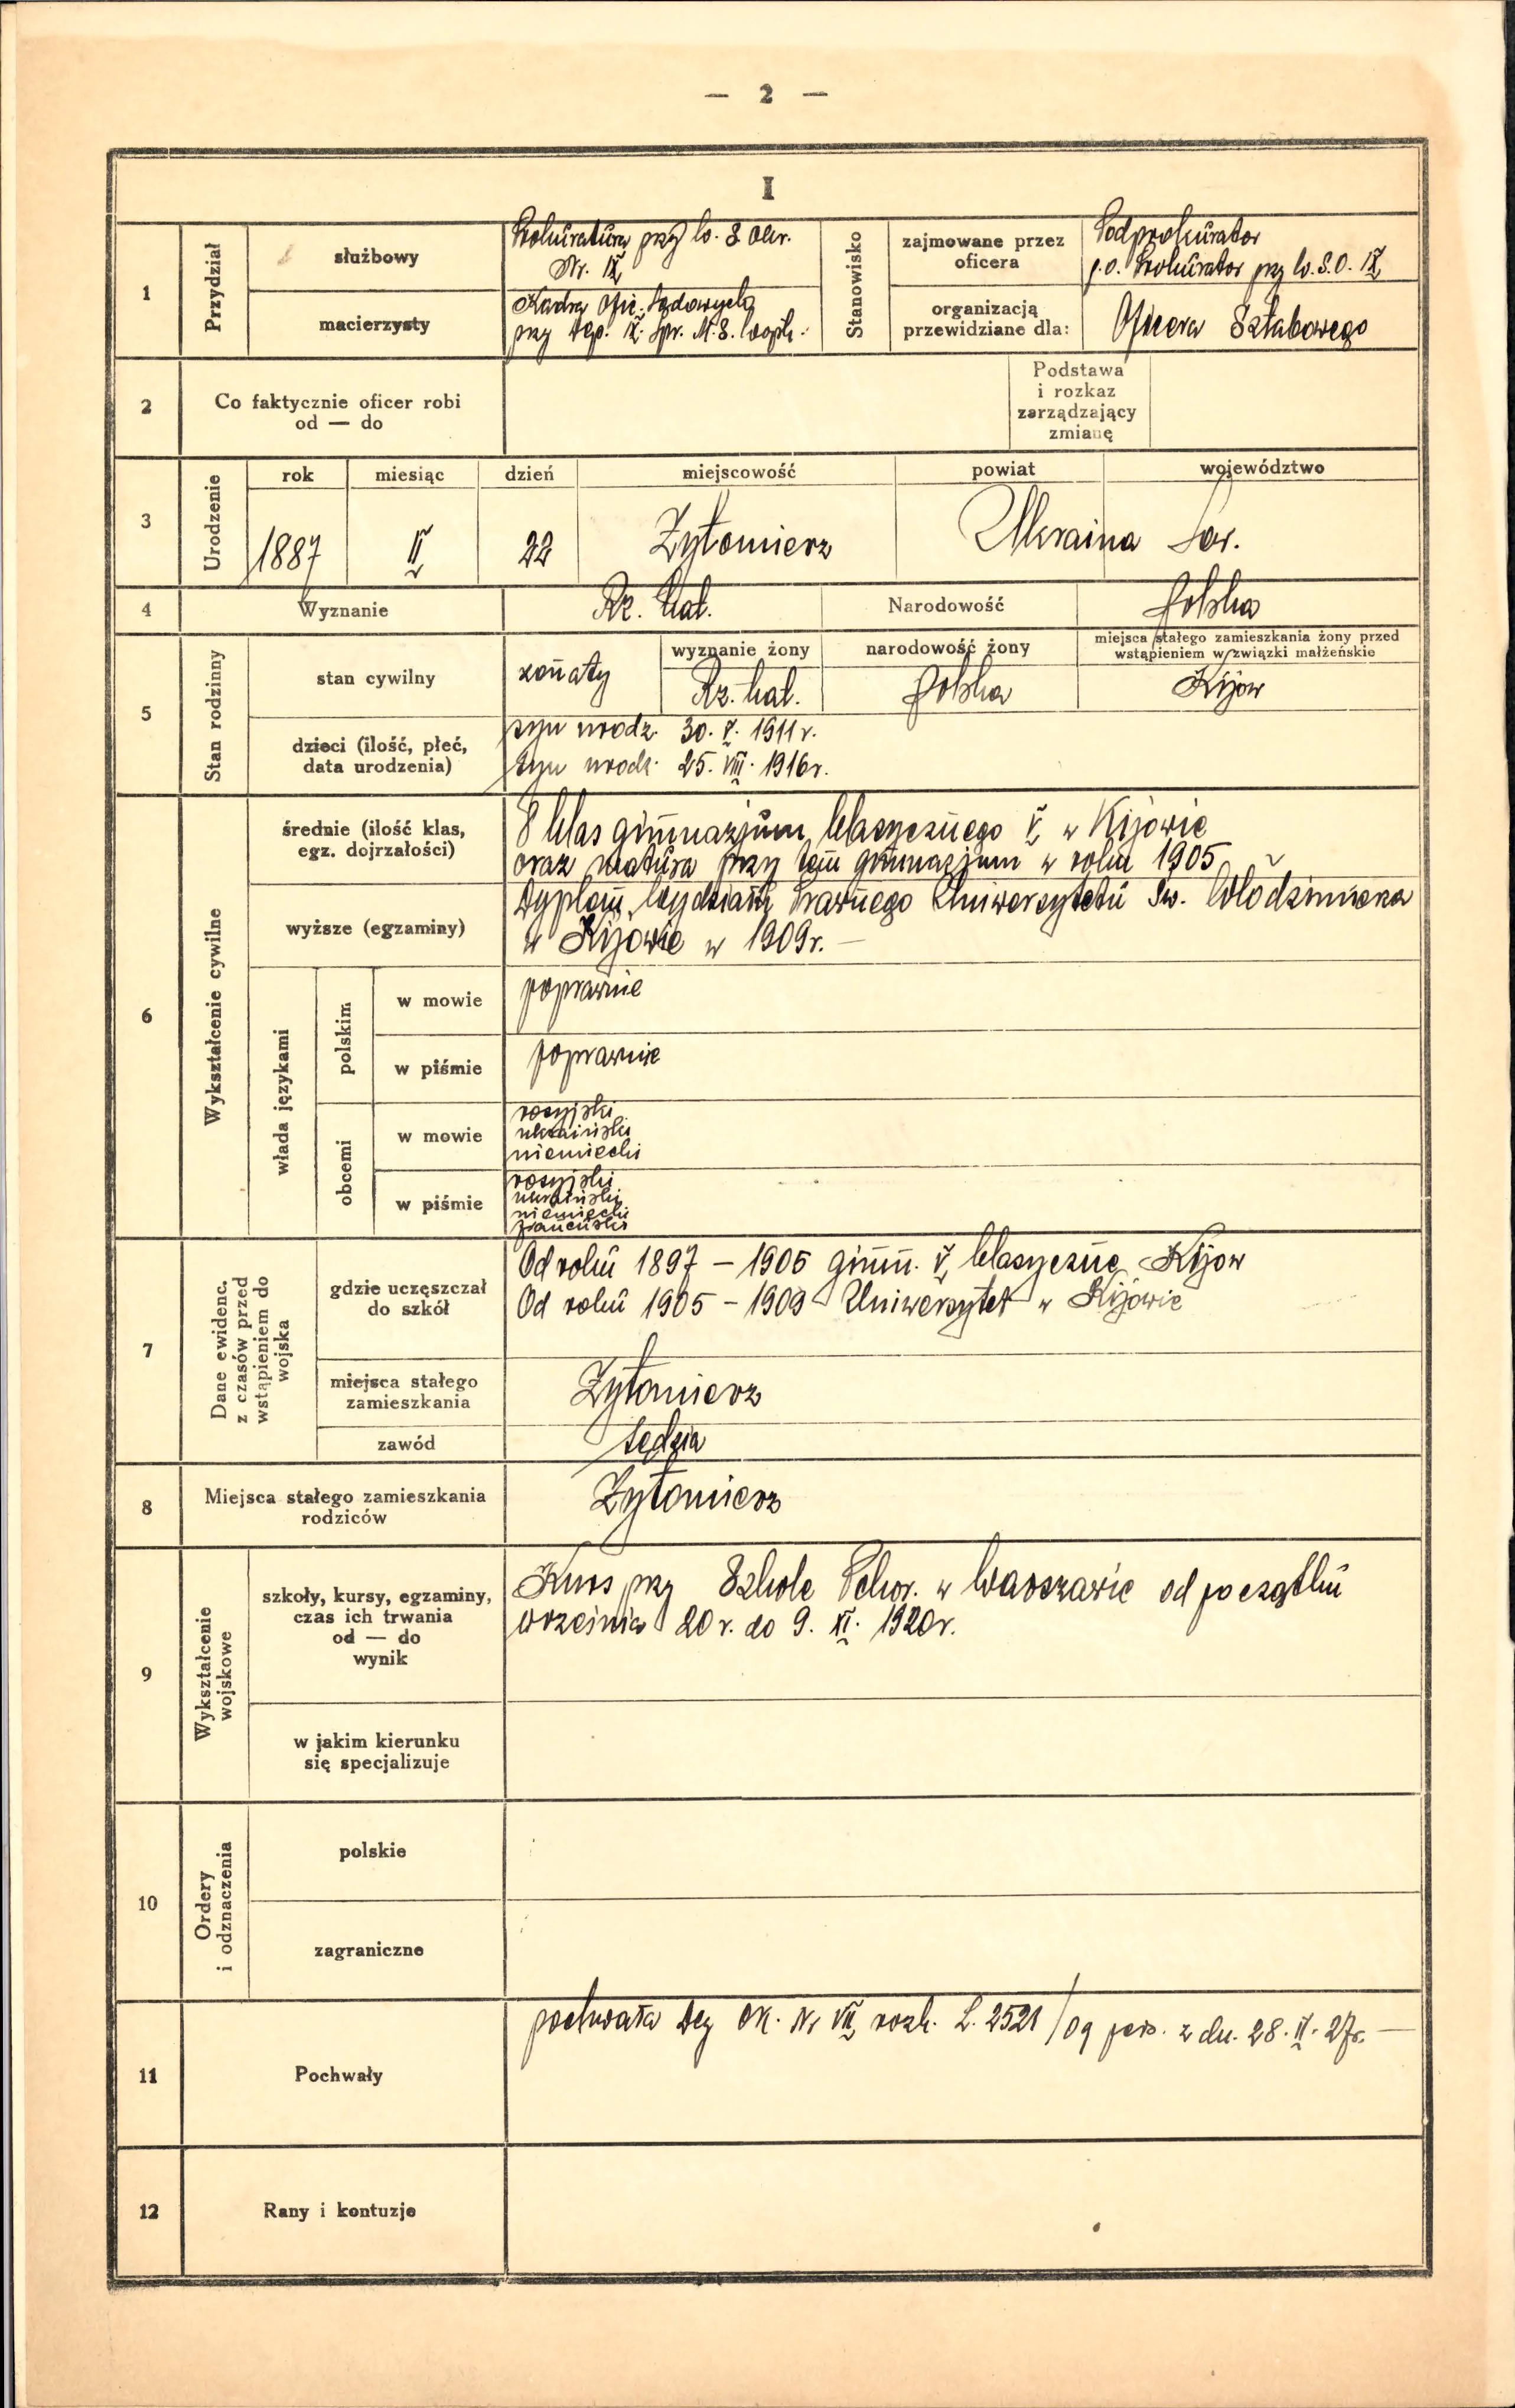 — 2 —
I
1
Przydział
służbowy
Prokuratura przy W. S. Okr.
Nr. IX
Stanowisko
zajmowane przez
oficera
Podprokurator
p.o. Prokurator przy W. S. O. IX
macierzysty
Kadra Ofic. Sądowych
przy Dep. IX. Spr. M. S. Wojsk.
organizacją
przewidziane dla:
Oficera Sztabowego
2
Co faktycznie oficer robi
od — do
Podstawa
i rozkaz
zarządzający
zmianę
3
Urodzenie
rok
miesiąc
dzień
miejscowość
powiat
województwo
1887
II
22
Żytomierz
Ukraina Sow.
4
Wyznanie
Rz. kat.
Narodowość
Polska
5
Stan rodzinny
stan cywilny
żonaty
wyznanie żony
Rz. kat.
narodowość żony
Polska
miejsca stałego zamieszkania żony przed
wstąpieniem w związki małżeńskie
Kijów
dzieci (ilość, płeć,
data urodzenia)
syn urodz. 30. V. 1911 r.
syn urodz. 25. VIII. 1916 r.
6
Wykształcenie cywilne
średnie (ilość klas,
egz. dojrzałości)
8 klas gimnazjum klasycznego V, w Kijowie
oraz matura przy tem gimnazjum w roku 1905
wyższe (egzaminy)
Dyplom Wydziału Prawnego Uniwersytetu Św. Włodzimierza
w Kijowie w 1909 r. —
włada językami
polskim
w mowie
poprawnie
w piśmie
poprawnie
obcemi
w mowie
rosyjski
ukraiński
niemiecki
w piśmie
rosyjski
ukraiński
niemiecki
francuski
7
Dane ewidenc.
z czasów przed
wstąpieniem do
wojska
gdzie uczęszczał
do szkół
Od roku 1897 – 1905 gimn. V, klasyczne Kijów
Od roku 1905 – 1909 Uniwersytet w Kijowie
miejsca stałego
zamieszkania
Żytomierz
zawód
sędzia
8
Miejsca stałego zamieszkania
rodziców
Żytomierz
9
Wykształcenie
wojskowe
szkoły, kursy, egzaminy,
czas ich trwania
od — do
wynik
Kurs przy Szkole Pchor. w Warszawie od początku
września 20 r. do 9. XI. 1920 r.
w jakim kierunku
się specjalizuje
10
Ordery
i odznaczenia
polskie
zagraniczne
11
Pochwały
pochwała Dcy OK. Nr VII rozk. L. 2521/og pers. z dn. 28. II. 27 r. —
12
Rany i kontuzje